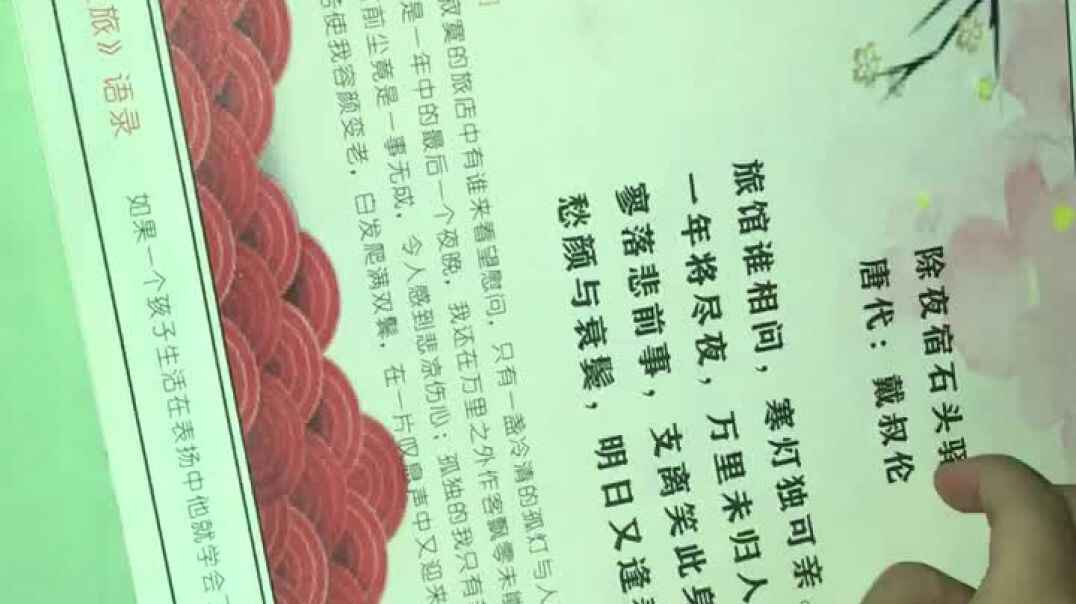 除夜宿石头驿
唐代：戴叔伦
旅馆谁相问，寒灯独可亲。
一年将尽夜，万里未归人
寥落悲前事，支离笑此身
愁颜与衰鬓，明日又逢
寂寞的旅店中有谁来看望慰问，只有一盏冷清的孤灯与人
是一年中的最后一个夜晚，我还在万里之外作客飘零未能
前尘竟是一事无成，令人感到悲凉伤心；孤独的我只有
使我容颜变老，白发爬满双鬓，在一片叹息声中又迎来
旅》语录
如果一个孩子生活在表扬中他就学会